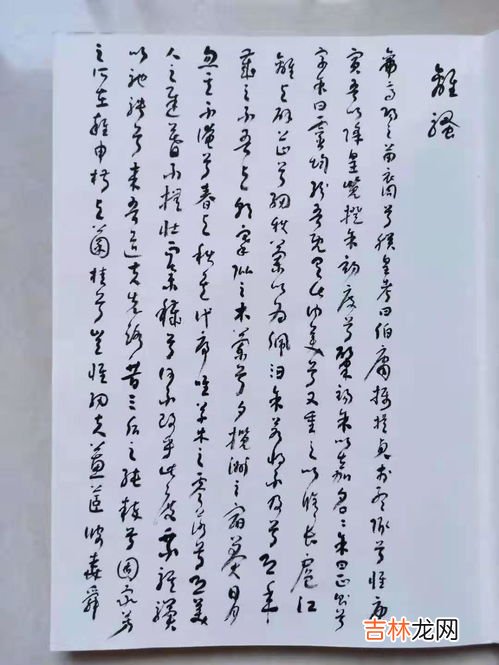 離騷
帝高陽之苗裔兮朕皇考曰伯庸攝提貞于孟陬兮惟庚
寅吾以降皇覽揆余初度兮肇錫余以嘉名〻余曰正則兮
字余曰靈均紛吾既有此內美兮又重之以脩能扈江
離與辟芷兮紉秋蘭以為佩汩余若將不及兮恐年
歲之不吾與朝搴阰之木蘭兮夕攬洲之宿莽日月
忽其不淹兮春與秋其代序唯草木之零落兮恐美
人之遲暮不撫壯而棄穢兮何不改乎此度乘騏驥
以馳騁兮來吾道夫先路昔三后之純粹兮固眾芳
之所在雜申椒與菌桂兮豈惟紉夫蕙茝彼堯舜
吉林龙网